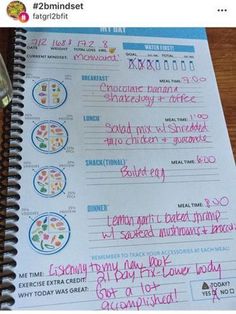 #2bmindset
fatgrl2bfit
MY DAY
WATER FIRST!
DATE WEIGHT TOTAL LOSS
7/2 168.8
CURRENT MINDSET: Motivated!
GOAL:
BREAKFAST MEAL TIME: 7:00
Chocolate banana
Shakeology + coffee
LUNCH MEAL TIME:
Salad mix w/ shredded
taco chicken +
SNACK(TIONAL) MEAL TIME:
Boiled egg
DINNER MEAL TIME: 8:00
Lemon garlic baked shrimp
w/ sauteed mushrooms +
REMEMBER TO TRACK YOUR ACCESSORIES AT EACH MEAL!
ME TIME: Listening to my new book
EXERCISE EXTRA CREDIT: 21 Day Fix-Lower body
WHY TODAY WAS GREAT: Got a lot
accomplished!
TODAY?
YES NO